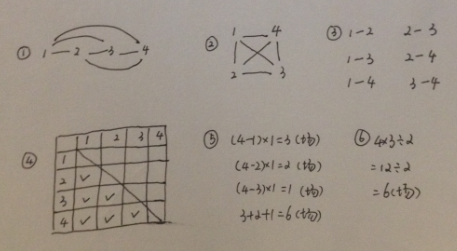 ① 1 — 2 — 3 — 4
② 1 4
2 3
③ 1-2 2-3
1-3 2-4
1-4 3-4
④ 1 2 3 4
1
2 ✓
3 ✓ ✓
4 ✓ ✓ ✓
⑤ (4-1)×1=3(场)
(4-2)×1=2(场)
(4-3)×1=1(场)
3+2+1=6(场)
⑥ 4×3÷2
=12÷2
=6(场)